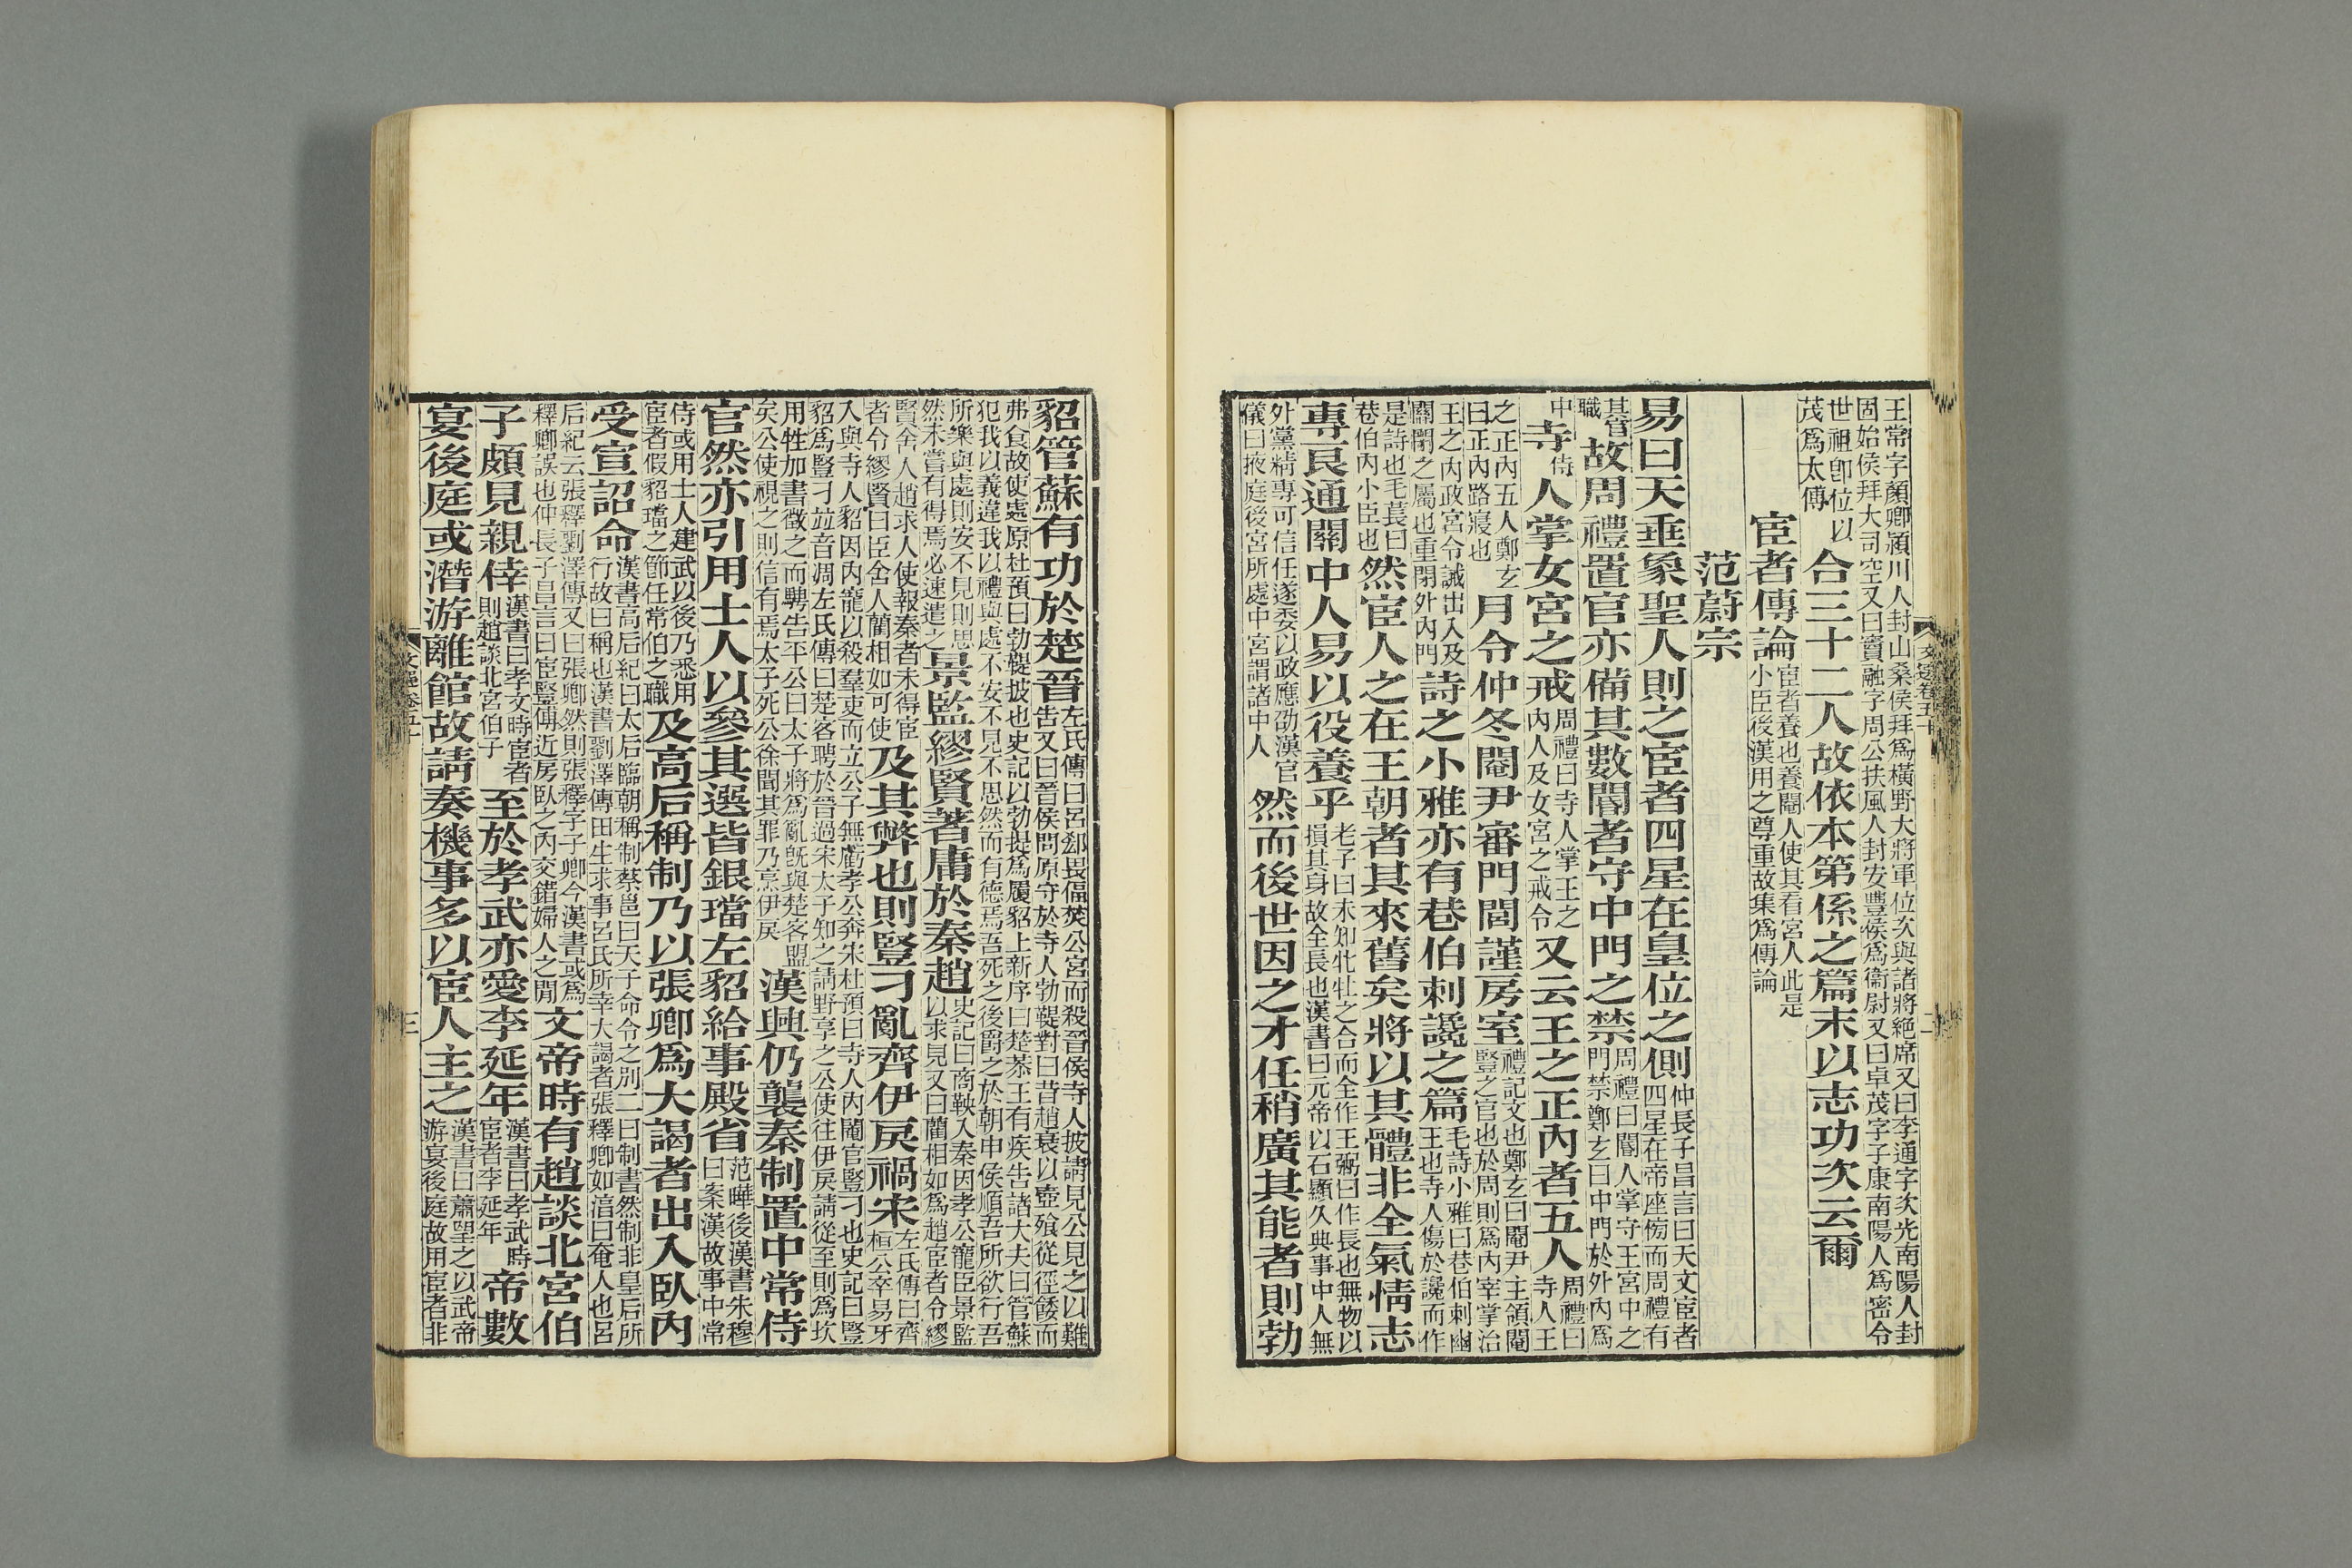 王常字顏卿潁川人封山桑侯拜爲橫野大將軍位次與諸將絶席又曰李通字次元南陽人封
固始侯拜大司空又曰竇融字周公扶風人封安豐侯爲衞尉又曰卓茂字子康南陽人爲密令
世祖卽位以茂爲太傅合三十二人故依本第係之篇末以志功次云爾
宦者傳論宦者養也養閹人使其看宮人此是小臣後漢用之尊重故集爲傳論
范蔚宗
易曰天垂象聖人則之宦者四星在皇位之側仲長子昌言曰天文宦者四星在帝座傍而周禮有
其官職故周禮置官亦備其數閽者守中門之禁周禮曰閽人掌守王宮中之門禁鄭玄曰中門於外內爲
中寺侍人掌女宮之戒周禮曰寺人掌王之內人及女宮之戒令又云王之正內者五人周禮曰寺人王
之正內五人鄭玄曰正內路寢也月令仲冬閹尹審門閭謹房室禮記文也鄭玄曰閹尹主領閹豎之官也於周則爲內宰掌治
王之內政宮令誡出入及開閉之屬也重閉外內門詩之小雅亦有巷伯刺讒之篇毛詩小雅曰巷伯刺幽王也寺人傷於讒而作
是詩也毛萇曰巷伯內小臣也然宦人之在王朝者其來舊矣將以其體非全氣情志
專良通關中人易以役養乎老子曰未知牝牡之合而全作王弼曰作長也無物以損其身故全長也漢書曰元帝以石顯久典事中人無
外黨精專可信任遂委以政應劭漢官儀曰掖庭後宮所處中宮謂諸中人然而後世因之才任稍廣其能者則勃
文選卷五十
二
貂管蘇有功於楚晉左氏傳曰呂郄畏偪焚公宮而殺晉侯寺人披請見公見之以難告又曰晉侯問原守於寺人勃鞮對曰昔趙衰以壺飱從徑餧而
弗食故使處原杜預曰勃鞮披也史記以勃鞮爲履貂上新序曰楚恭王有疾告諸大夫曰管蘇
犯我以義違我以禮與處不安不見不思然而有德焉吾死之後爵之於朝申侯順吾所欲行吾
所樂與處則安不見則思然未嘗有得焉必速遣之景監繆賢著庸於秦趙史記曰商鞅入秦因孝公寵臣景監以求見又曰藺相如爲趙宦者令繆
賢舍人趙求人使報秦者未得宦者令繆賢曰臣舍人藺相如可使及其弊也則豎刁亂齊伊戾禍宋左氏傳曰齊桓公卒易牙
入與寺人貂因內寵以殺羣吏而立公子無虧孝公奔宋杜預曰寺人內閹官豎刁也史記曰豎
貂爲豎刁並音凋左氏傳曰楚客聘於晉過宋太子知之請野享之公使往伊戾請從至則爲坎
用牲加書徵之而騁告平公曰太子將爲亂旣與楚客盟矣公使視之則信有焉太子死公徐聞其罪乃烹伊戾漢興仍襲秦制置中常侍
官然亦引用士人以參其選皆銀璫左貂給事殿省范曄後漢書朱穆曰案漢故事中常
侍或用士人建武以後乃悉用宦者假貂璫之節任常伯之職及高后稱制乃以張卿爲大謁者出入臥內
受宣詔命漢書高后紀曰太后臨朝稱制蔡邕曰天子命令之別二曰制書然制非皇后所行故曰稱也漢書劉澤傳田生求事呂氏所幸大謁者張釋卿如淳曰奄人也呂
后紀云張釋劉澤傳又曰張卿然則張釋字子卿今漢書或爲釋卿誤也仲長子昌言曰宦豎傅近房臥之內交錯婦人之閒文帝時有趙談北宮伯
子頗見親倖漢書曰孝文時宦者則趙談北宮伯子至於孝武亦愛李延年漢書曰孝武時宦者李延年帝數
宴後庭或潛游離館故請奏機事多以宦人主之漢書曰蕭望之以武帝游宴後庭故用宦者非
文選卷五十
三